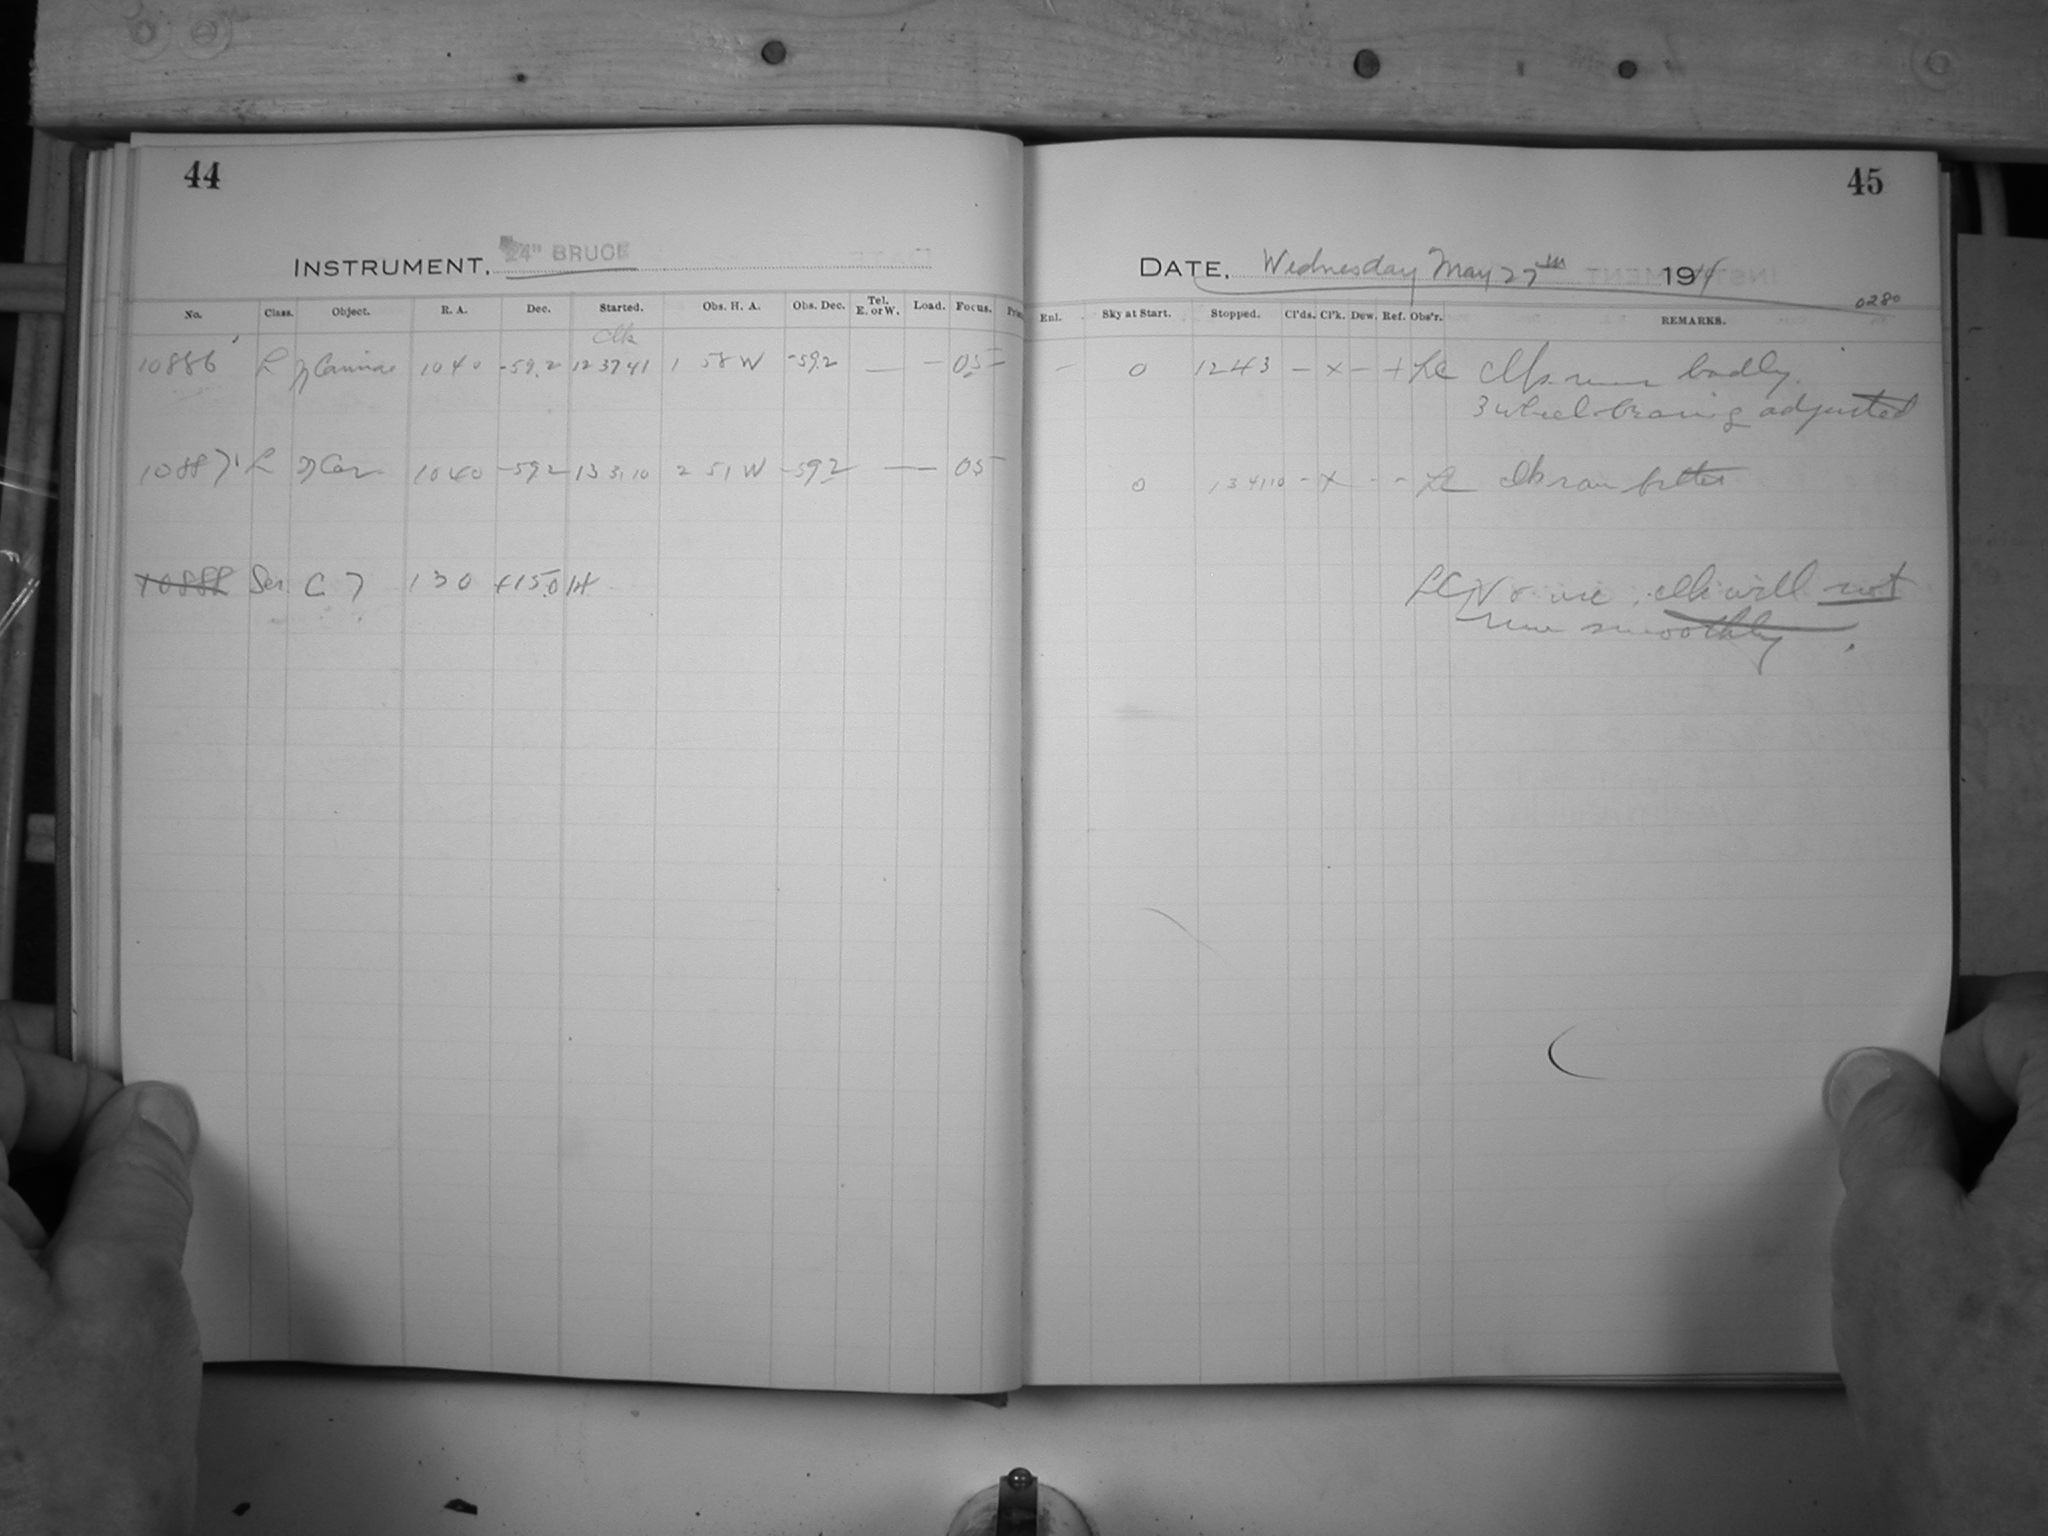 44
INSTRUMENT. 24" BRUCE
No. Class. Object. R. A. Dec. Started. Obs. H. A. Obs. Dec. Tel. E. or W. Load. Focus.
Clk
10886 L η Carinae 1040 -59.2 12 37 41 1 58 W -59.2 — — 05
10887 L η Car 1040 -59.2 13 31 10 2 51 W -59.2 — — 05
10888 Ser C 7 130 +15.0
45
DATE. Wednesday May 27th 1914
0280
Enl. Sky at Start. Stopped. Cl'ds. Cl'k. Dew. Ref. Obs'r. REMARKS.
– 0 1243 – x – + LC Clk run badly.
3 wheel bearing adjusted
0 13 41 10 – x - - LC Clk ran better
LC No use, clk will not
run smoothly.